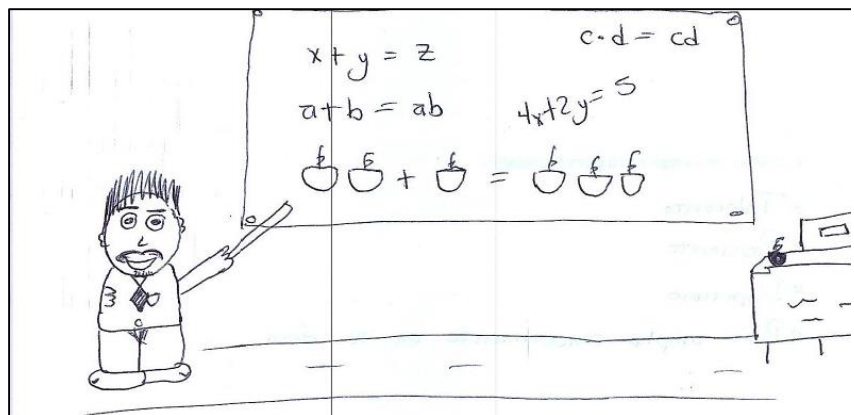 x + y = z
c · d = cd
a + b = ab
4x+2y=5
+ =